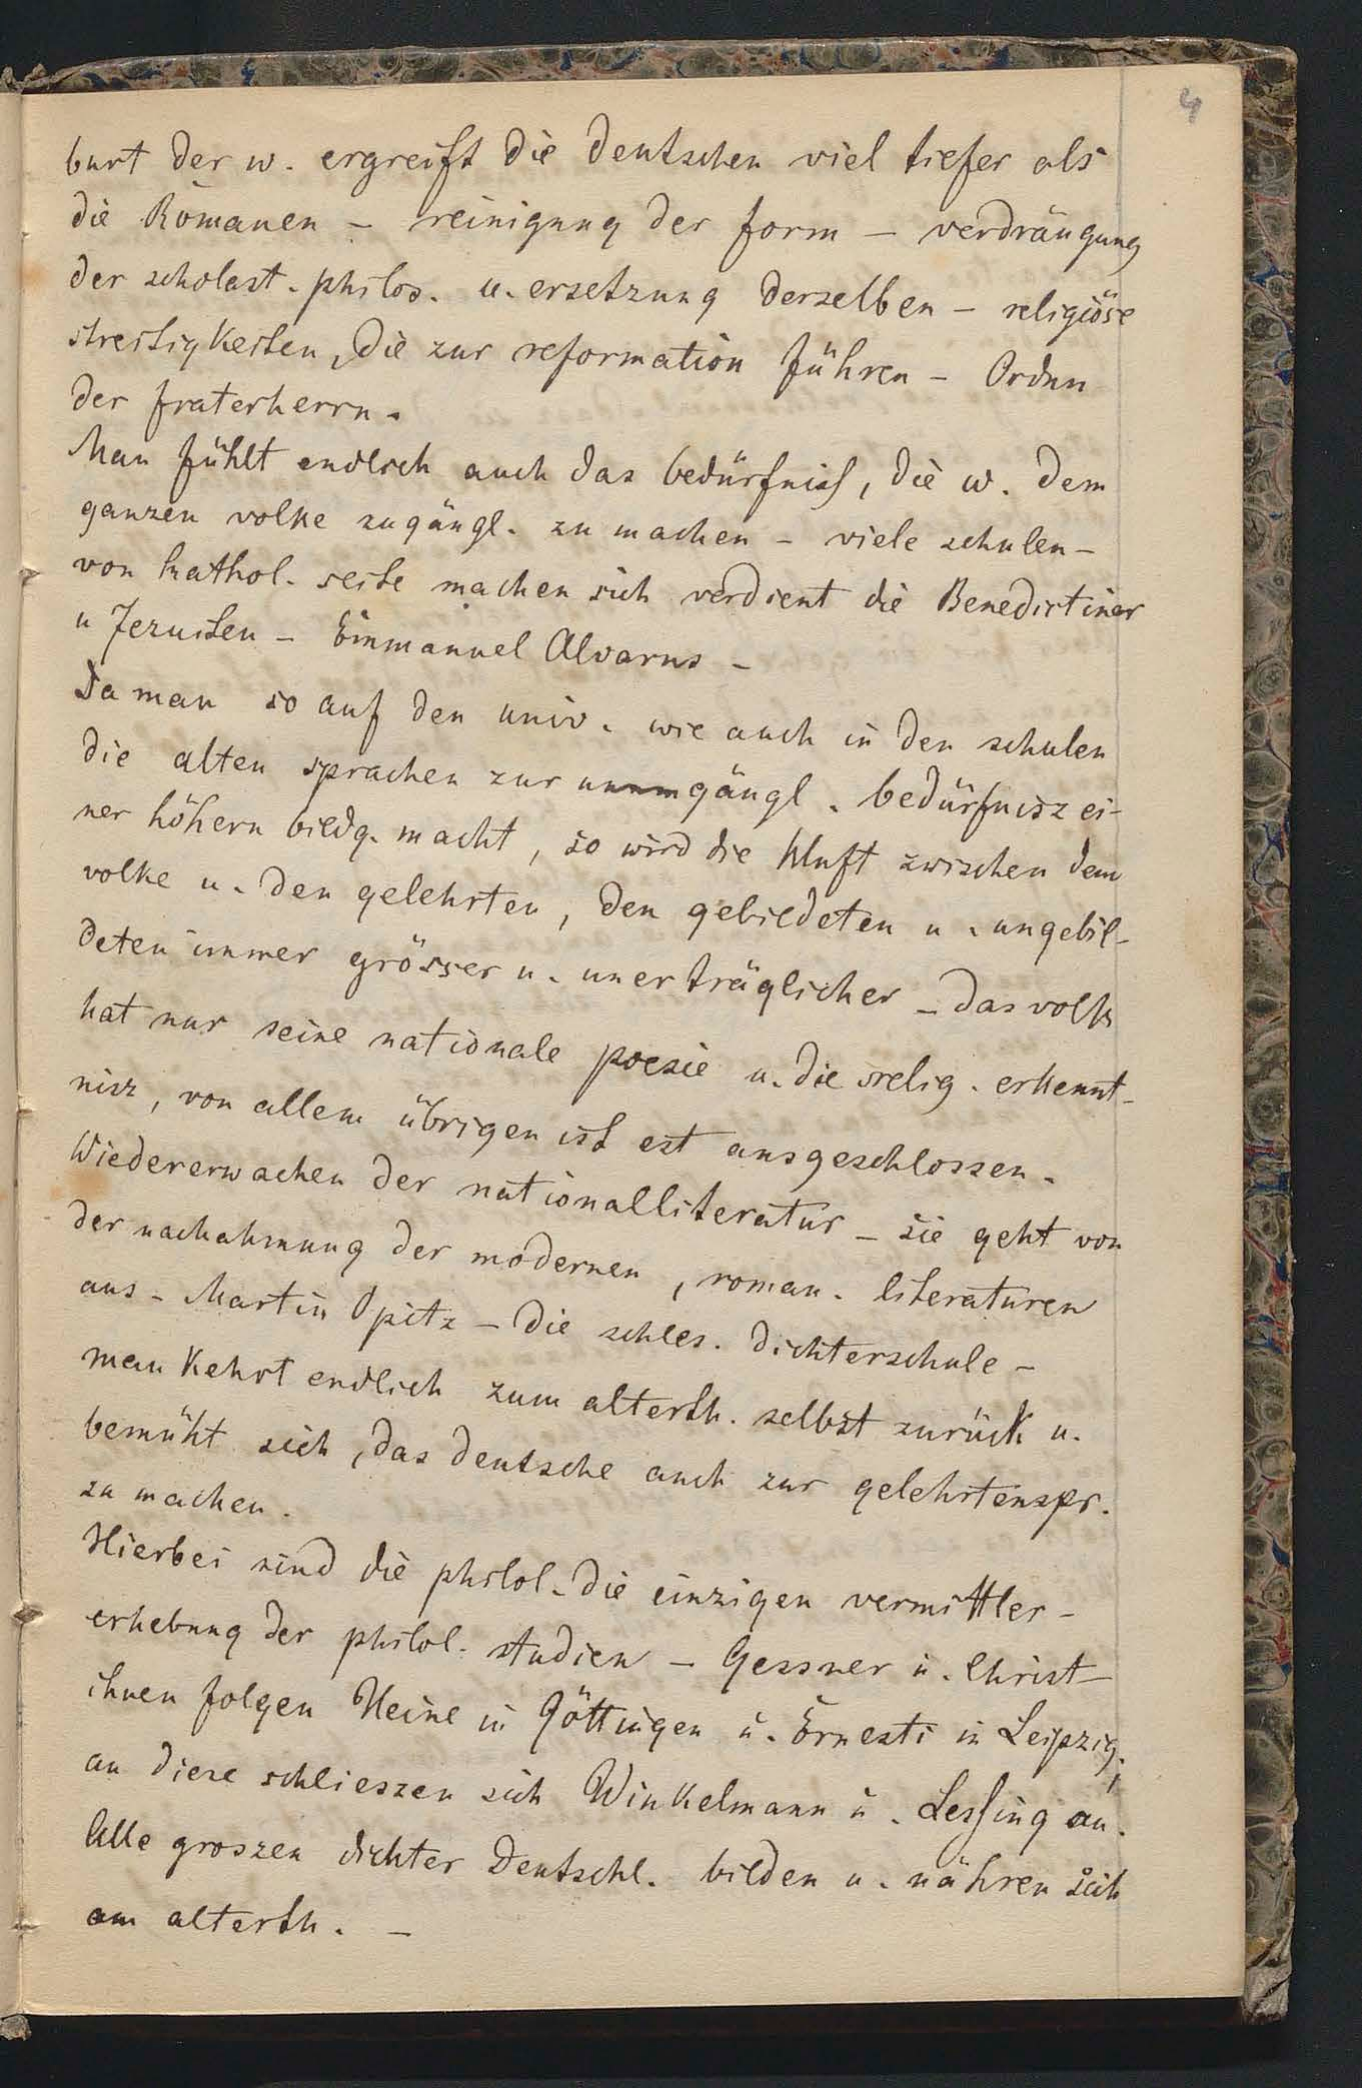 4
burt der w. ergreift die Deutschen viel tiefer als
die Romanen – reinigung der form – verdrängung
der scholast. philos. u. ersetzung derselben – religiöse
streitigkeiten, die zur reformation führen – Orden
der fraterherrn.
Man fühlt endlich auch das bedürfniß, die w. dem
ganzen volke zugängl. zu machen – viele schulen –
von kathol. seite machen sich verdient die Benedictiner
u Jezuiten – Emmanuel Alvarus –
Da man so auf den univ. wie auch in den schulen
die alten sprachen zur unumgängl. bedürfnisz ei-
ner höhern bildg. macht, so wird die kluft zwischen dem
volke u. den gelehrten, den gebildeten u. ungebil-
deten immer grösser u. unerträglicher – das volk
hat nur seine nationale poesie u. die relig. erkennt-
nisz, von allem übrigen ist est ausgeschlossen.
Wiedererwachen der nationalliteratur – sie geht von
der nachahmung der modernen, roman. literaturen
aus – Martin Opitz – die schles. dichterschule –
man kehrt endlich zum alterth. selbst zurück u.
bemüht sich, das deutsche auch zur gelehrtenspr.
zu machen.
Hierbei sind die philol. die einzigen vermittler –
erhebung der philol. studien – Gessner u. Christ –
ihnen folgen Heine in Göttingen u. Ernesti in Leipzig;
an diese schlieszen sich Winkelmann u. Leßing an.
Alle groszen dichter Deutschl. bilden u. nähren sich
am alterth. –